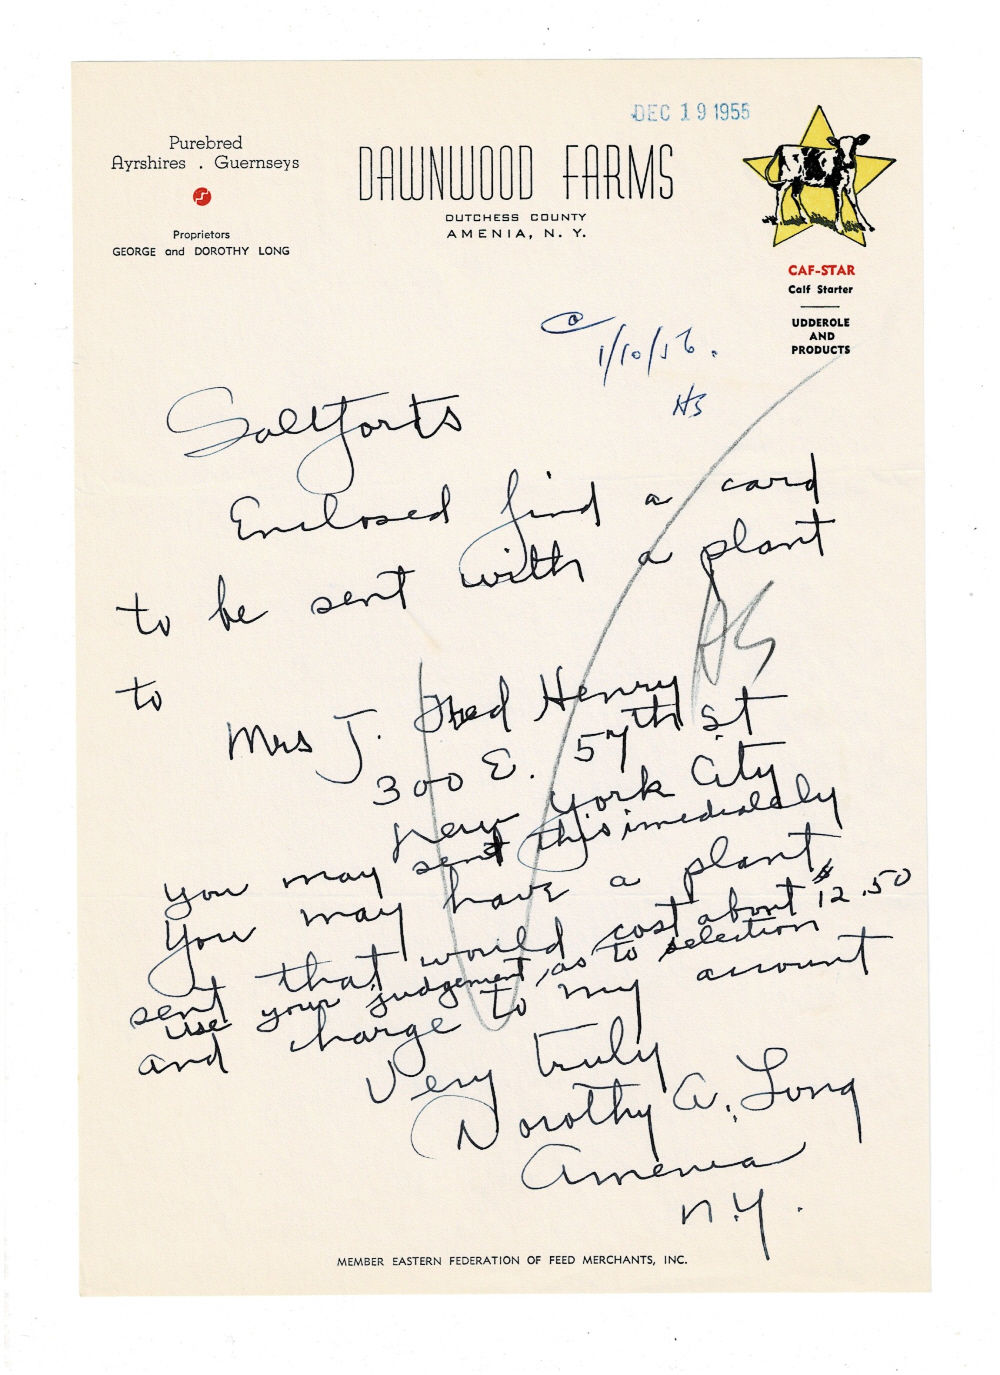 DEC 19 1955
Purebred
Ayrshires . Guernseys
Proprietors
GEORGE and DOROTHY LONG
DAWNWOOD FARMS
DUTCHESS COUNTY
AMENIA, N. Y.
CAF-STAR
Calf Starter
UDDEROLE
AND
PRODUCTS
1/10/56.
HS
Saltfords
Enclosed find a card
to be sent with a plant
to
HS
Mrs J. Fred Henry
300 E. 57th St
New York City
you may send this imediately
You may have a plant
sent that would cost about $12.50
use your judgement, as to selection
and charge to my account
Very truly
Dorothy A. Long
Amenia
N.Y.
MEMBER EASTERN FEDERATION OF FEED MERCHANTS, INC.